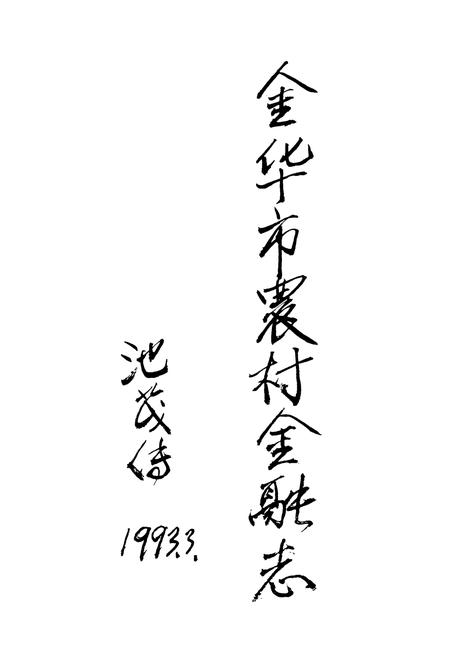 金华市農村金融志
池茂传
1993.3.